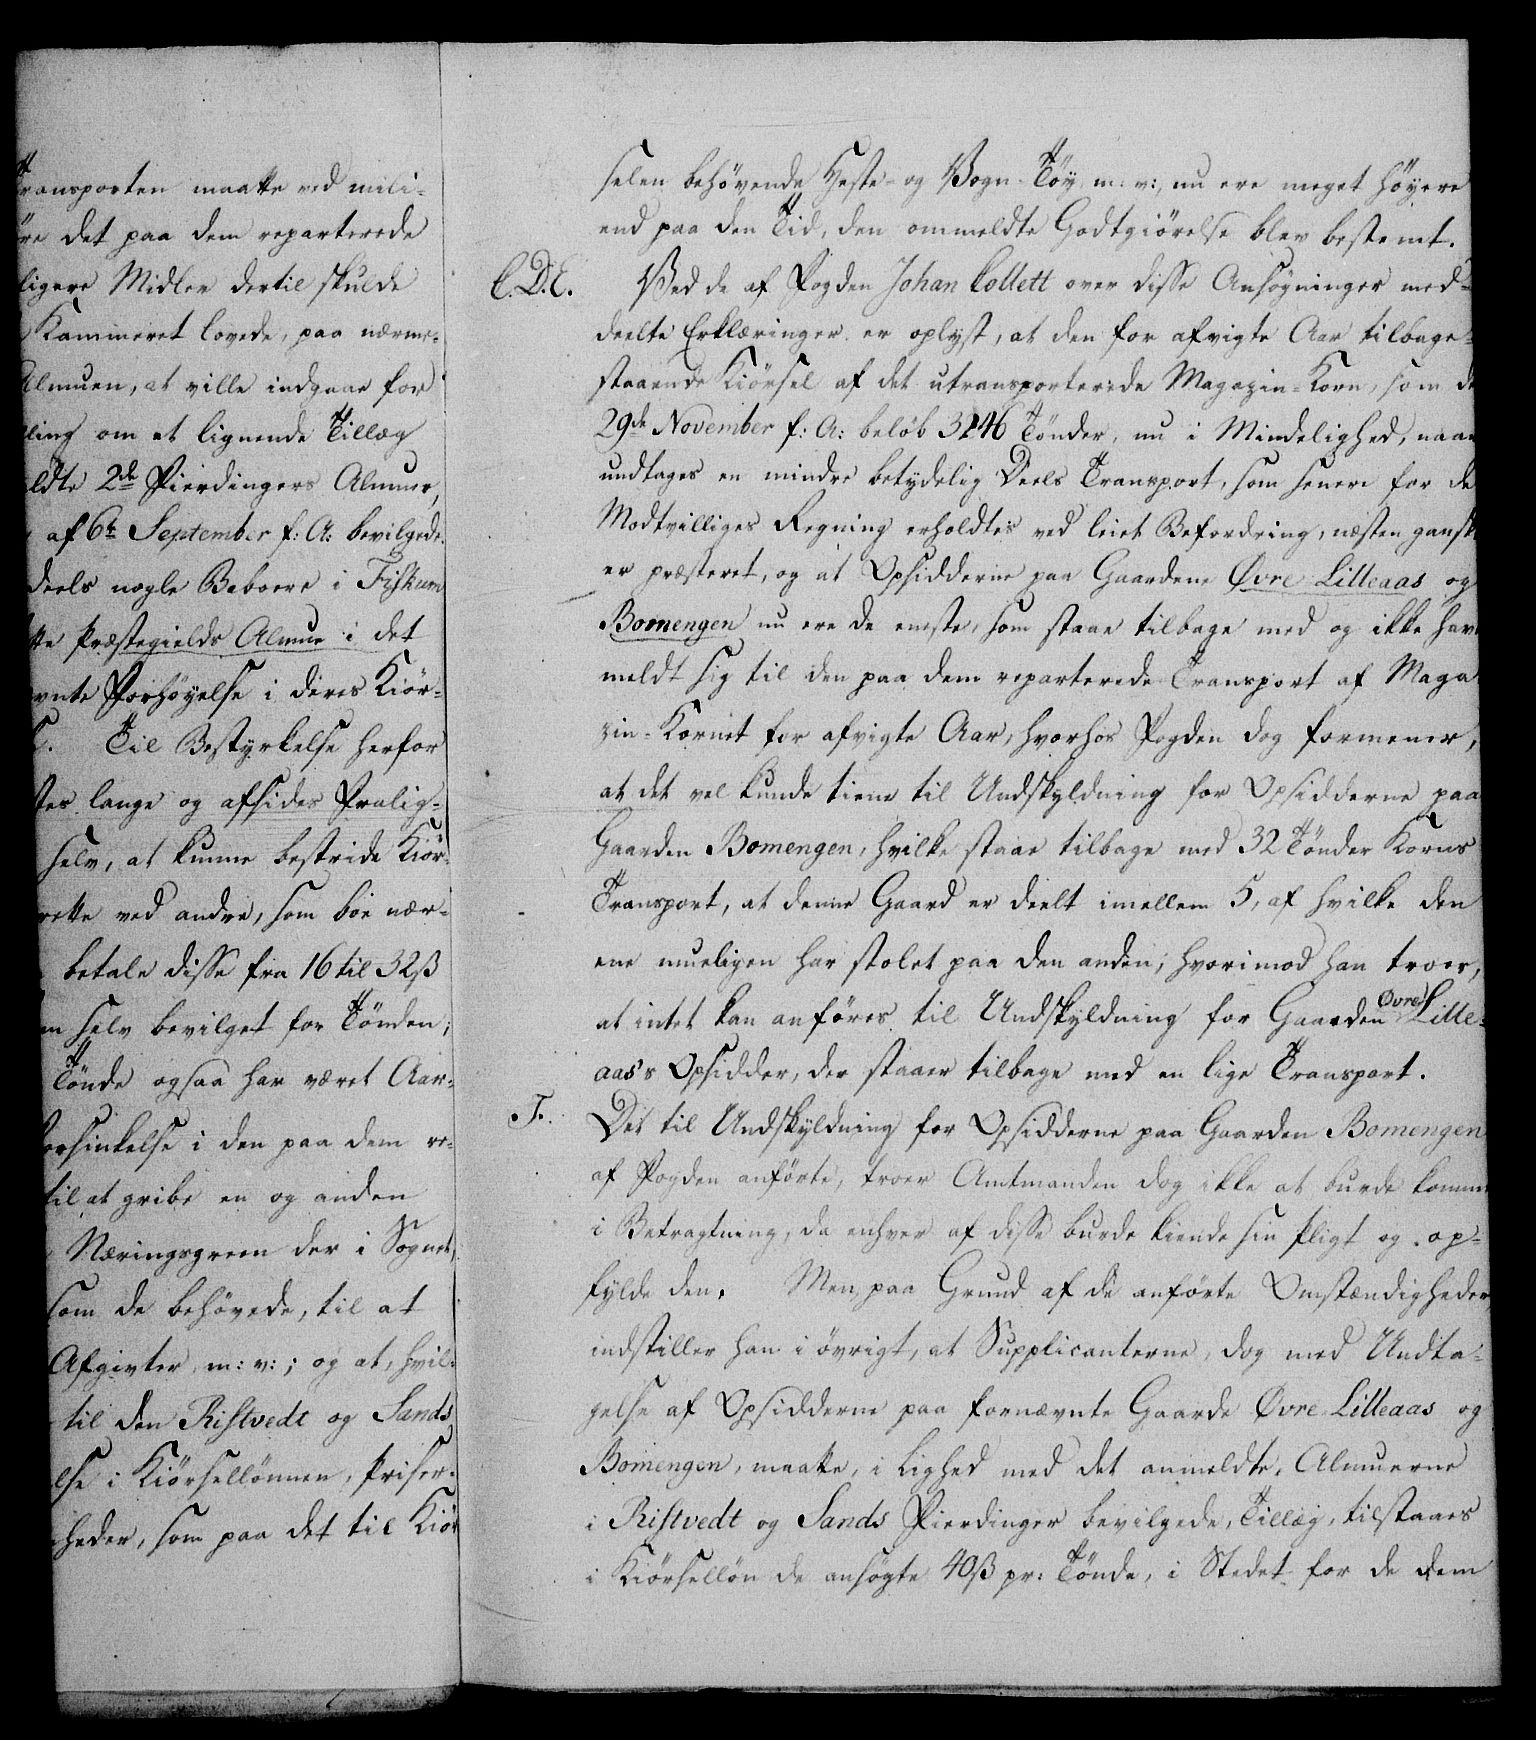 Transporten maatte ved mili-
re det paa dem reparterede
ligere Midler dertil skulde
Kammeret lovede, paa nærme-
Almuen, at ville indgaae for
ling om et lignende Tillæg
ldte 2de Fierdingers Almuer,
af 6te September f: A: bevilgede.
deels nogle Beboere i Fiskum
Præstegields Almue i det
vnte Forhøyelse i deres Kiør-
Til Bestyrkelse herfor
tes lange og afsides Fralig-
selv, at kunne bestride Kiør-
rette ved andre, som boe nær-
betale disse fra 16 til 32ß
selv bevilget for Tønden;
Tønde ogsaa har været Aar-
orsinkelse i den paa dem re-
til at gribe en og anden
Næringsgreen der i Sognet,
som de behøvede, til at
Afgivter m: v:; og at, hvil-
til den Ristvedt og Sands
lse i Kiørsellønnen, Priser-
heder, som paa det til Kiør
selen behøvende Heste- og Vogn-Töy m: v:, nu ere meget høyere
end paa den Tid, den ommeldte Godtgiørelse blev bestemt.
C. D. E. Ved de af Fogden Johan Collett over disse Ansøgninger med-
deelte Erklæringer er oplyst, at den for afvigte Aar tilbage-
staaende Kiørsel af det utransporterede Magazin-Korn, som d
29de November f: A: beløb 3246 Tønder, nu i Mindelighed, naar
undtages en mindre betydelig Deels Transport, som senere for de
Modtvilliges Regning erholdtes ved leiet Befordring, næsten gansk
er præsteret, og at Opsidderne paa Gaardene Øvre Lilleaas og
Bomengen nu ere de eneste, som staae tilbage med og ikke hav
meldt sig til den paa dem reparterede Transport af Maga
zin-Kornet for afvigte Aar, hvorhos Fogden dog formener,
at det vel kunde tiene til Undskyldning for Opsidderne paa
Gaarden Bomengen, hvilke staae tilbage med 32 Tønder Korns
Transport, at denne Gaard er deelt imellem 5, af hvilke den
ene mueligen har stolet paa den anden; hvorimod han troer,
at intet kan anføres til Undskyldning for Gaarden Øvre Lille-
aas's Opsidder, der staaer tilbage med en lige Transport.
F. Det til Undskyldning for Opsidderne paa Gaarden Bomengen
af Fogden anførte, troer Amtmanden dog ikke at burde komme
i Betragtning, da enhver af disse burde kiende sin Pligt og op-
fylde den. Men, paa Grund af de anførte Omstændigheder,
indstiller han i øvrigt, at Supplicanterne, dog med Undta-
gelse af Opsidderne paa fornævnte Gaarde Øvre Lilleaas og
Bomengen, maatte, i Lighed med det anmeldte, Almuerne
i Ristvedt og Sands Fierdinger bevilgede, Tillæg, tilstaaes
i Kiørselløn de ansøgte 40ß pr: Tønde, i Stedet for de dem